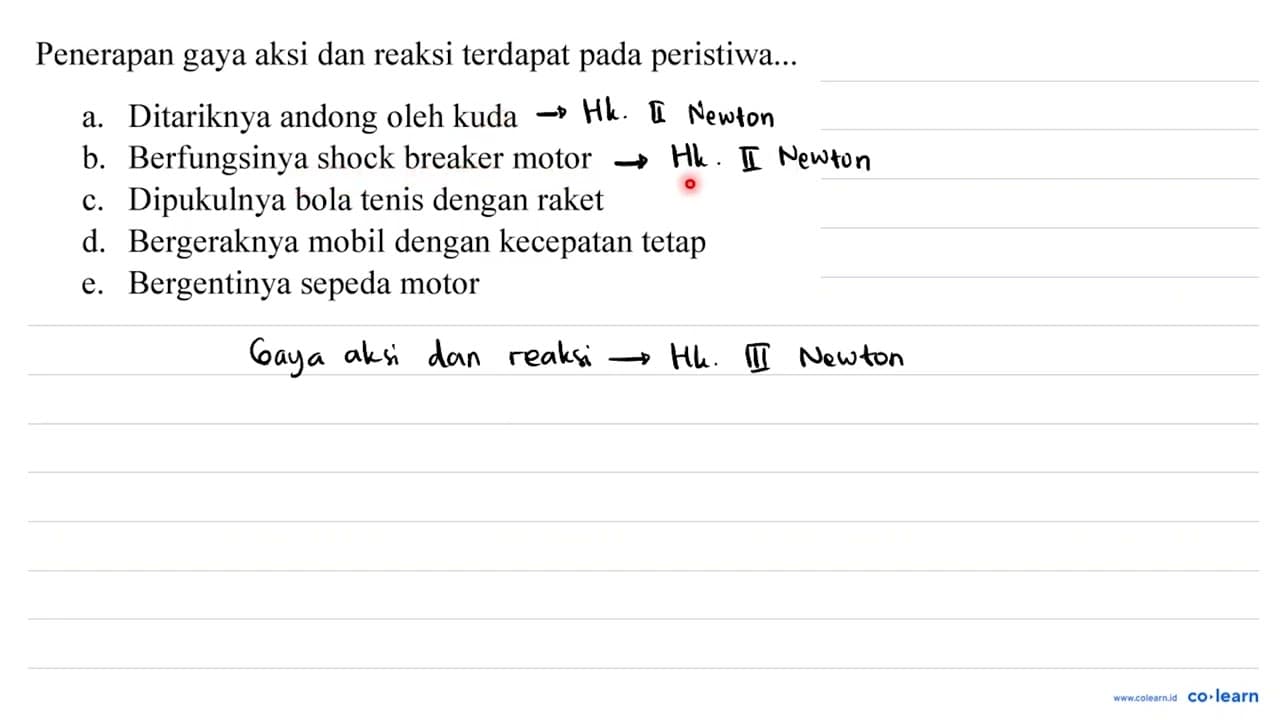 Penerapan gaya aksi dan reaksi terdapat pada peristiwa...
a. Ditariknya andong oleh kuda → Hk. II Newton
b. Berfungsinya shock breaker motor → Hk. II Newton
c. Dipukulnya bola tenis dengan raket
d. Bergeraknya mobil dengan kecepatan tetap
e. Bergentinya sepeda motor
Gaya aksi dan reaksi → Hk. III Newton
www.colearn.id co·learn